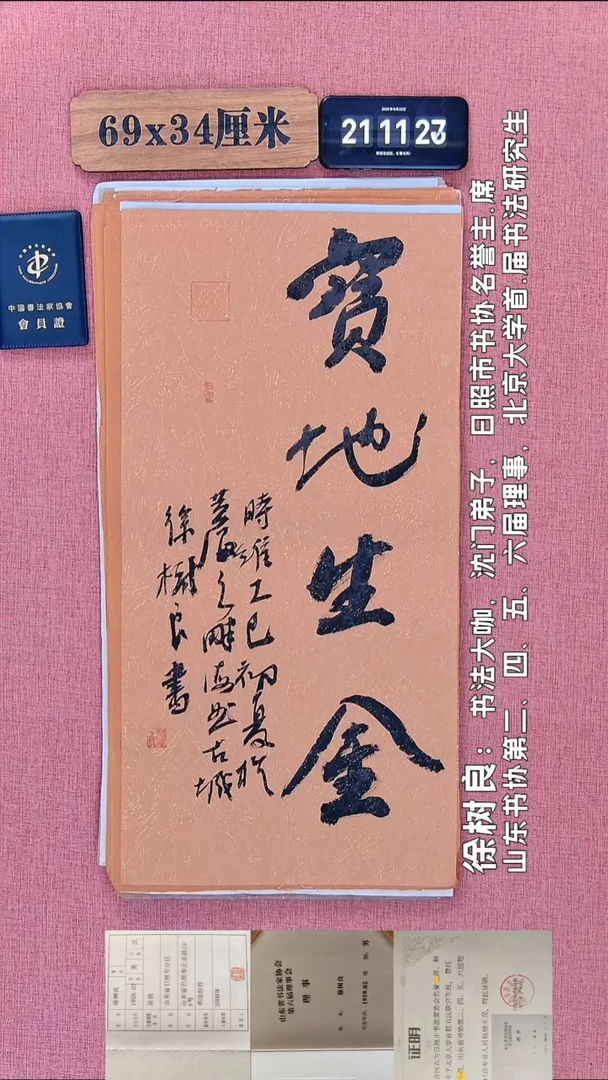 69x34厘米
21 11 23
中國書法家協會
會員證
寶地生金
時維乙巳初夏於
黄海之畔海曲古城
徐樹良書
徐树良：书法大咖，沈门弟子，日照市书协名誉主.席
山东书协第二、四、五、六届理事，北京大学首.届书法研究生
徐树良
男
汉
1959.02
2009年
山东省书法家协会
第六届理事会
理事
徐树良
男
1959.02
证明